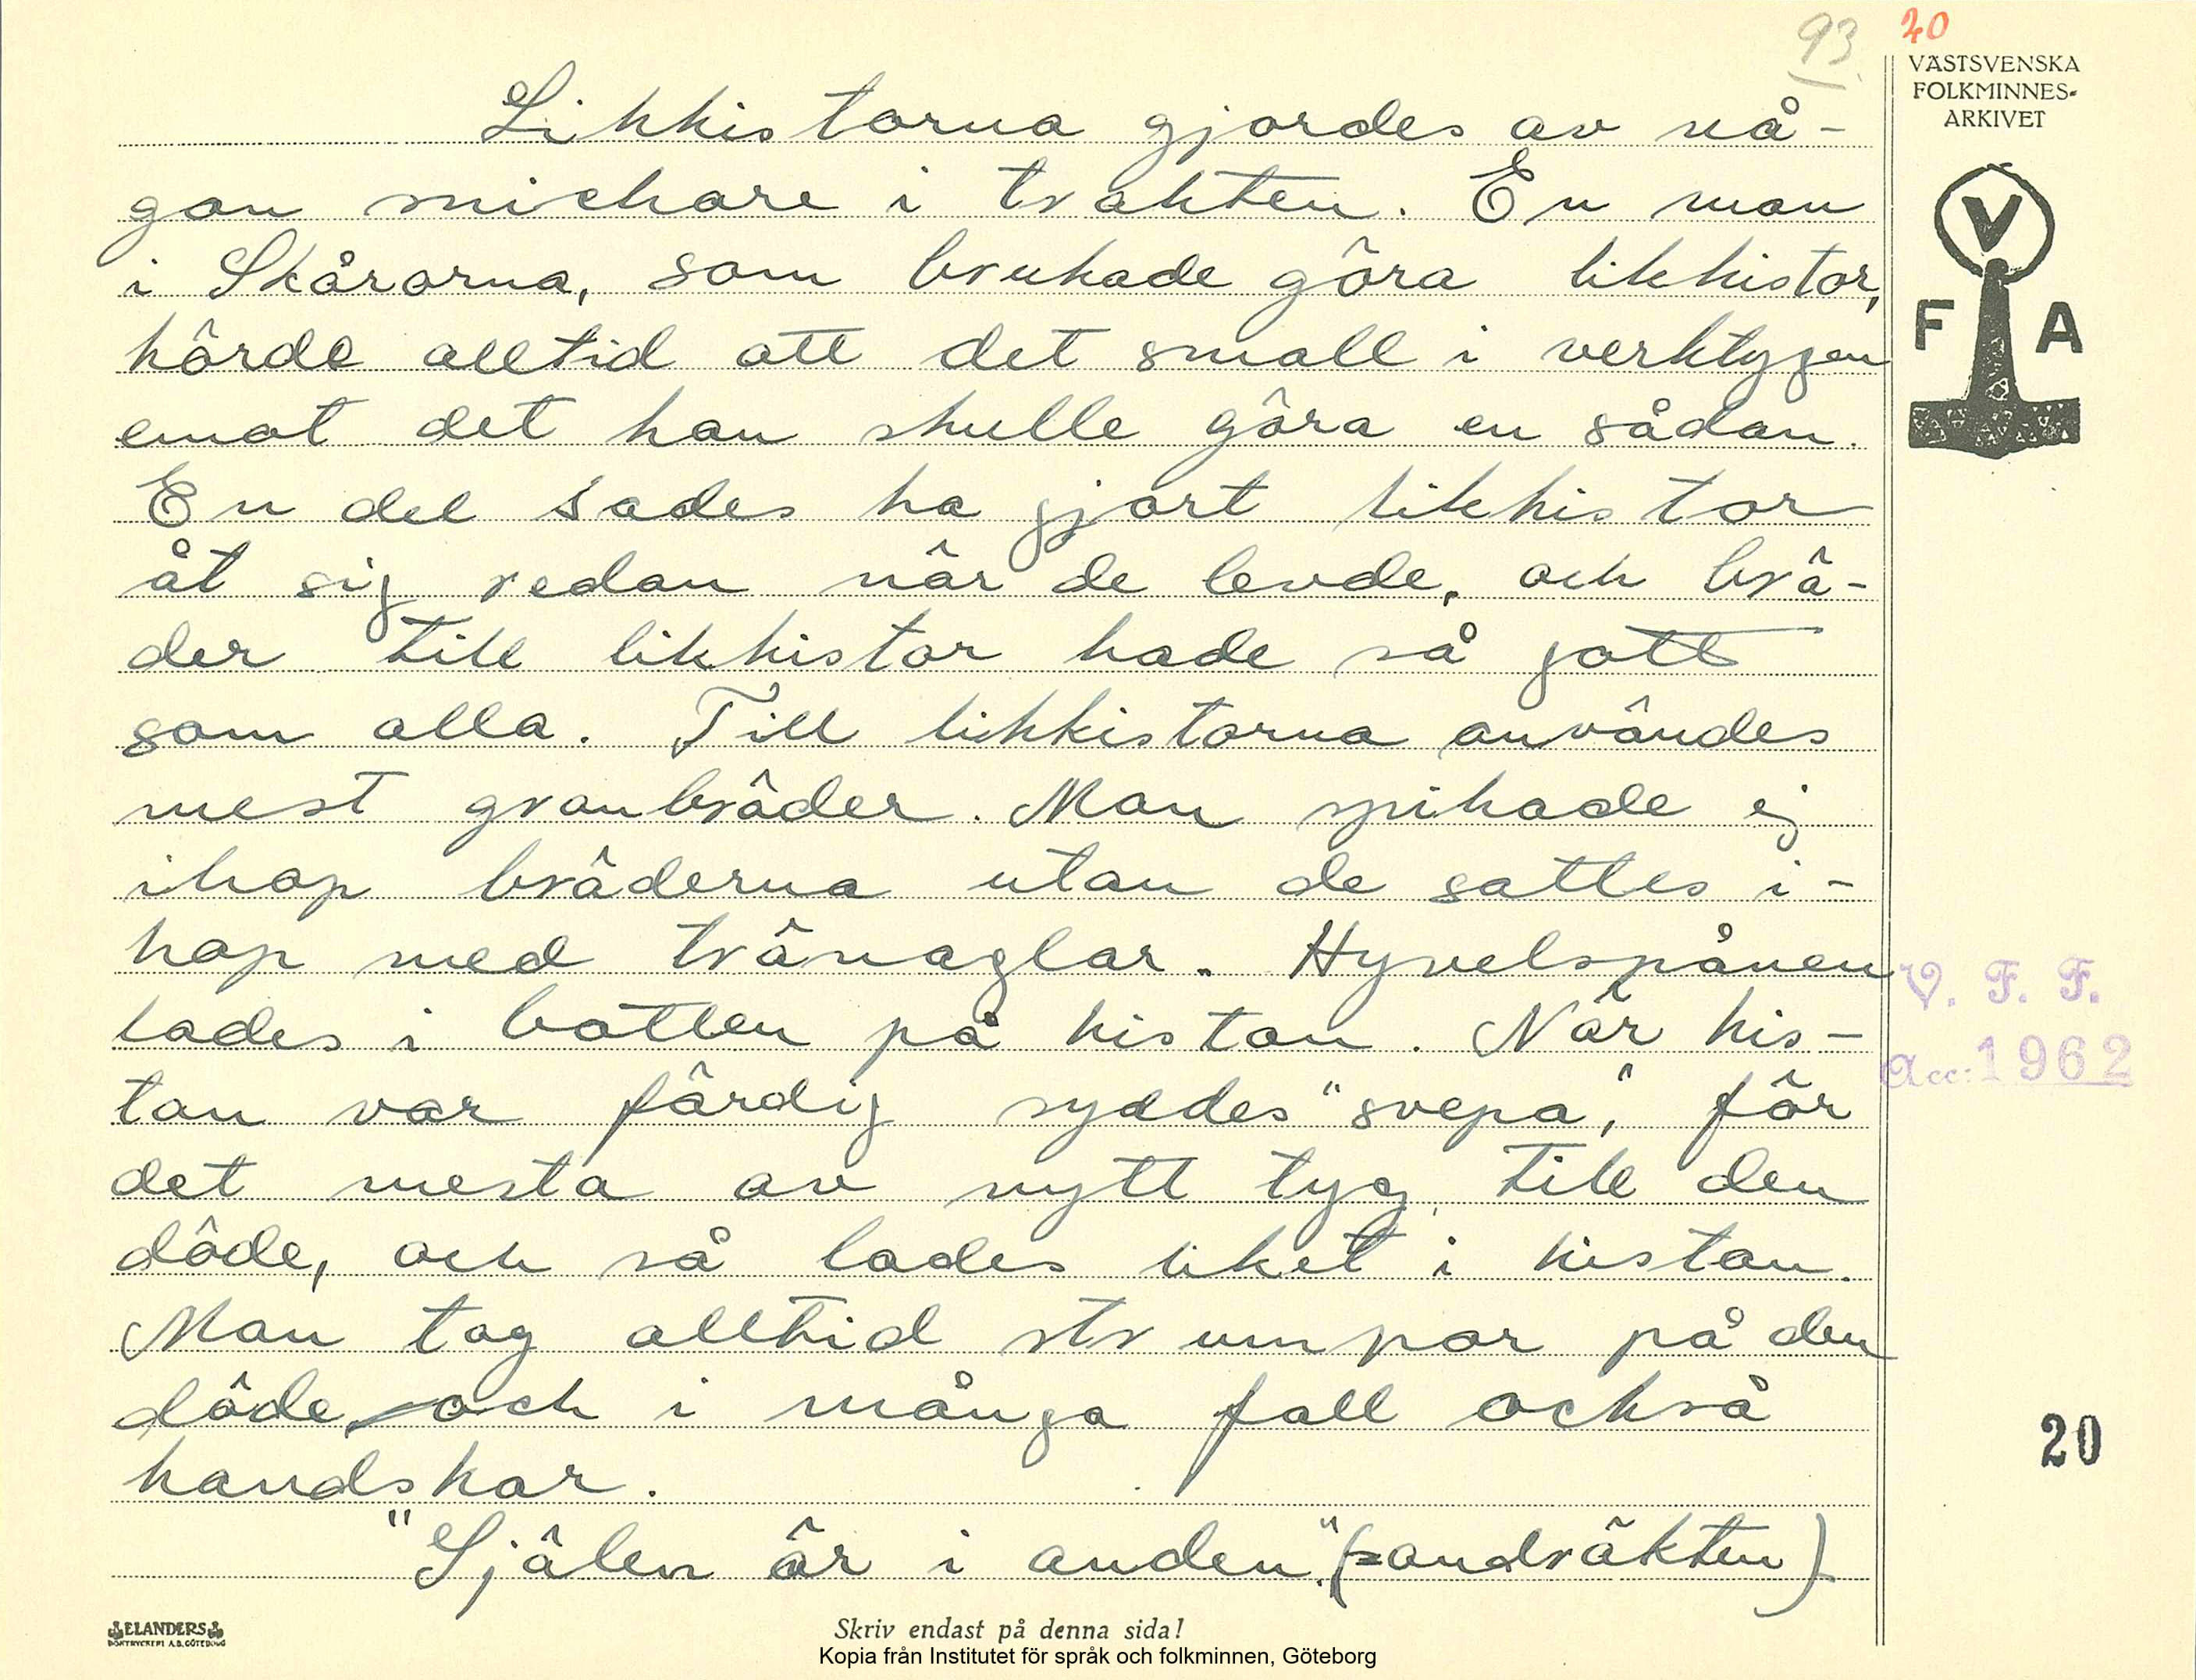 93. 20
VÄSTSVENSKA
FOLKMINNES-
ARKIVET
V
F A
Likkistorna gjordes av nå-
gon snickare i trakten. En man
i Skårorna, som brukade göra likkistor,
hörde alltid att det small i verktygen
emot det han skulle göra en sådan.
En del sades ha gjort likkistor
åt sig redan när de levde, och brä-
der till likkistor hade så gott
som alla. Till likkistorna användes
mest granbräder. Man spikade ej
ihop bräderna utan de sattes i-
hop med tränaglar. Hyvelspånen
lades i botten på kistan. När kis-
tan var färdig syddes "svepa", för
det mesta av nytt tyg, till den
döde, och så lades liket i kistan.
Man tog alltid strumpor på den
döde och i många fall också
handskar.
"Själen är i anden". (=andräkten)
V. F. F.
Acc: 1962
20
ELANDERS
BOKTRYCKERI A.B. GÖTEBORG
Skriv endast på denna sida!
Kopia från Institutet för språk och folkminnen, Göteborg